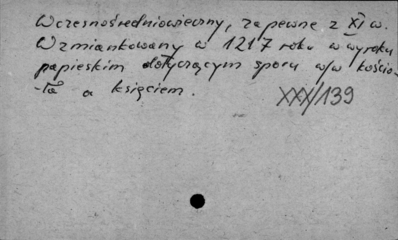 Wczesnośredniowieczny, zapewne z XI w.
Wzmiankowany w 1217 roku w wyroku
papieskim dotyczącym sporu w/w kościo-
-ła a księciem.
XXX/139